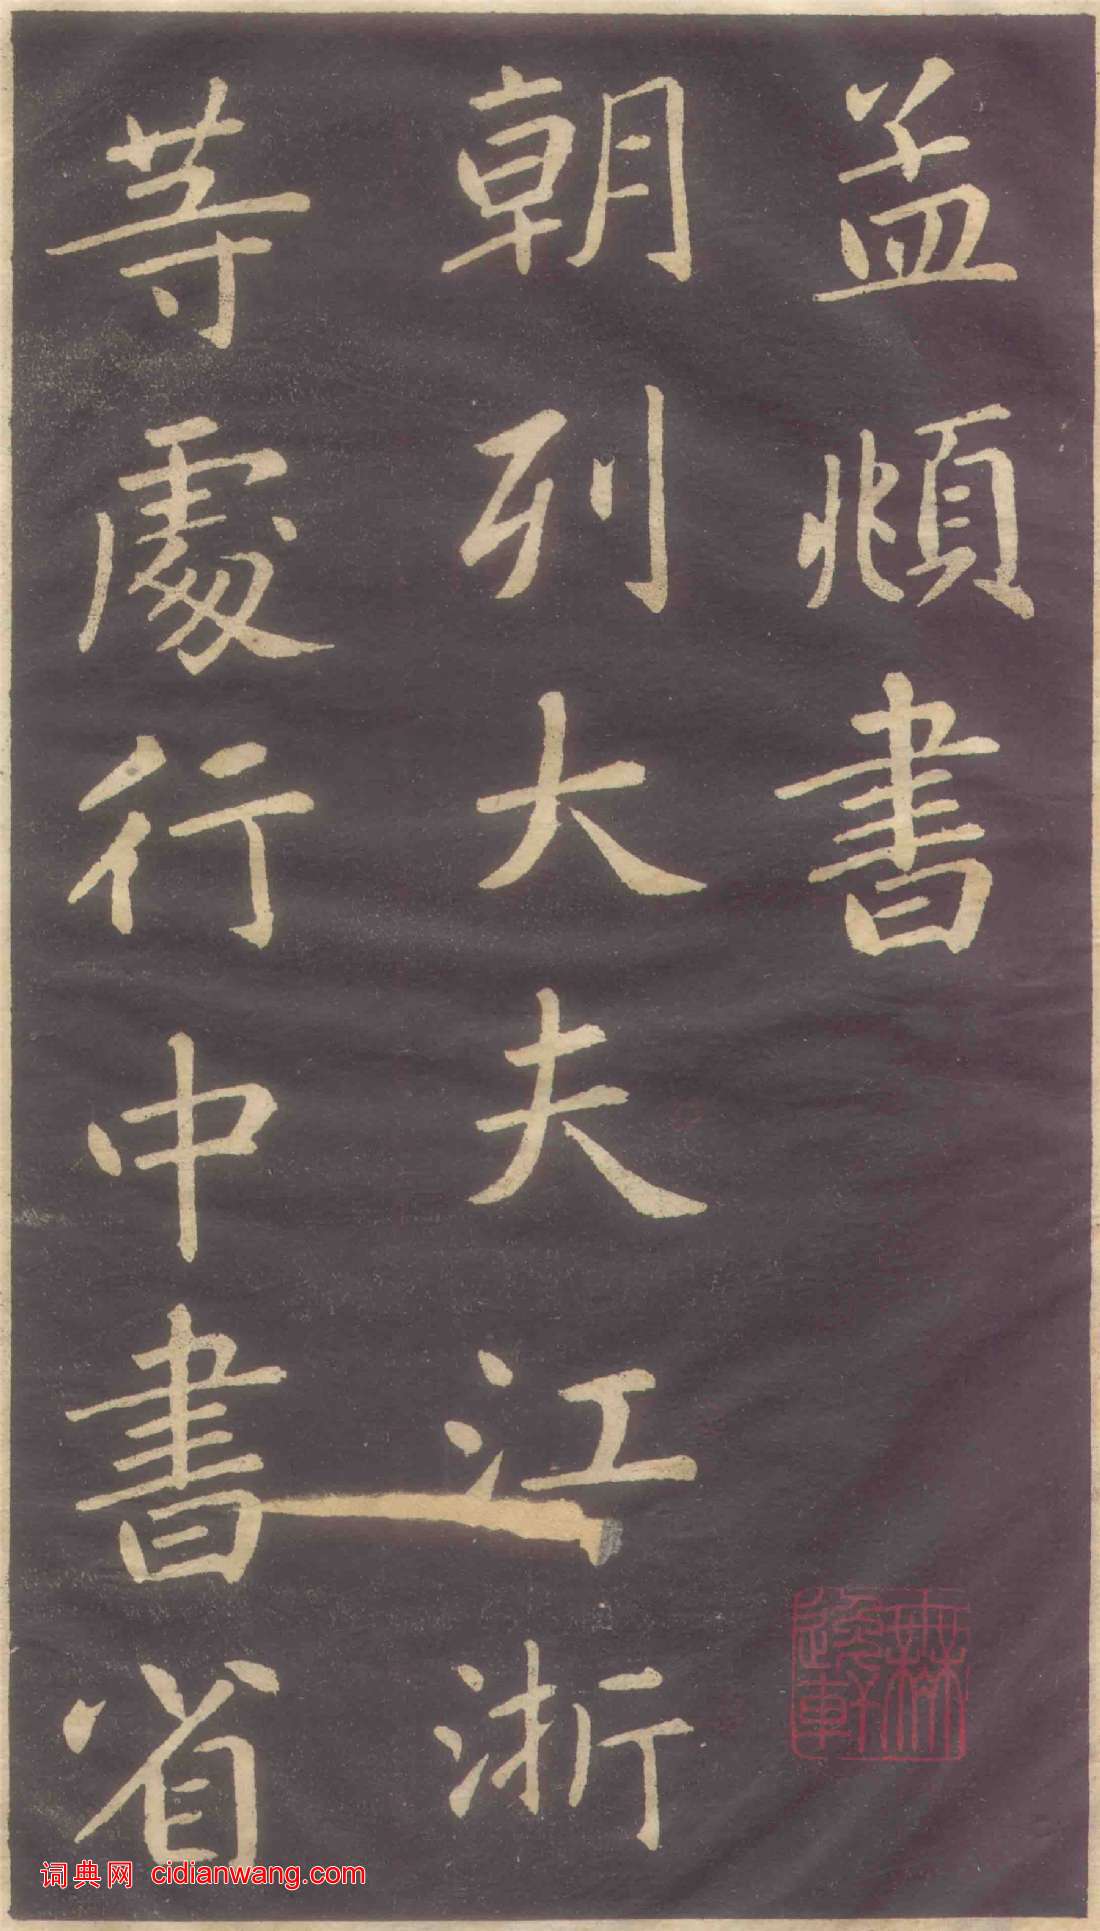 孟頫書
朝列大夫江浙
等處行中書省
無逸軒
词典网 cidianwang.com